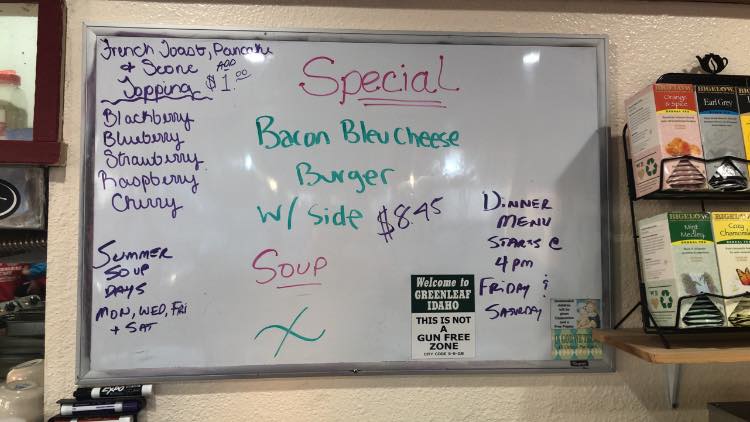 French Toast, Pancake
& Scone ADD
Topping $1.00
Blackberry
Blueberry
Strawberry
Raspberry
Cherry
SUMMER
SOUP
DAYS
MON, WED, FRI
+ SAT
Special
Bacon Bleu Cheese
Burger
W/ Side $8.45
Soup
DINNER
MENU
STARTS @
4 PM
FRIDAY &
SATURDAY
Welcome to
GREENLEAF
IDAHO
THIS IS NOT
A
GUN FREE
ZONE
EXPO
BIGELOW
Orange
& Spice
BIGELOW
Earl Grey
BIGELOW
Mint
Medley
BIGELOW
Cozy